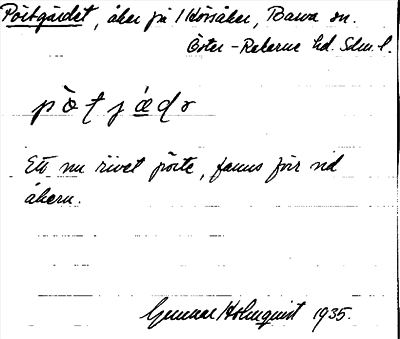 Pörtgärdet, åker på Horsåker, Barva sn.
Öster-Rekarne hd. Sdm. l.
Ett nu rivet pörte, fanns förr vid
åkern.
Gunnar Holmquist 1935.